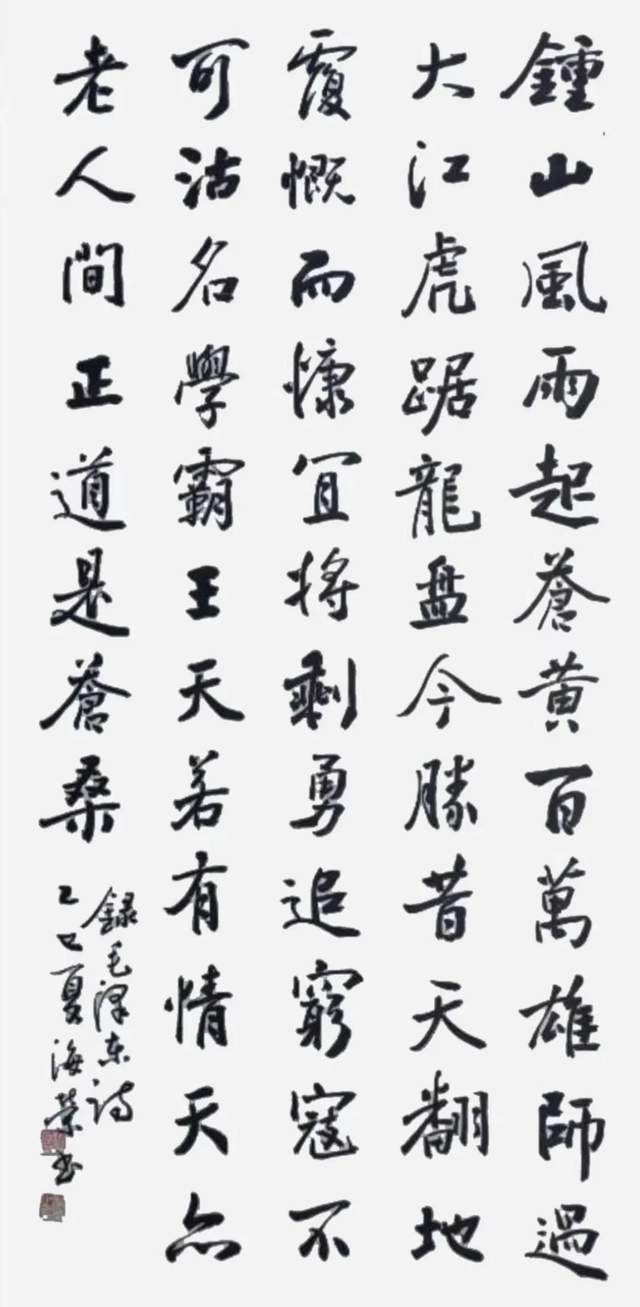 鍾山風雨起蒼黃百萬雄師過
大江虎踞龍盤今勝昔天翻地
覆慨而慷宜將剩勇追窮寇不
可沽名學霸王天若有情天亦
老人間正道是蒼桑
錄毛澤东詩
乙巳夏海榮书